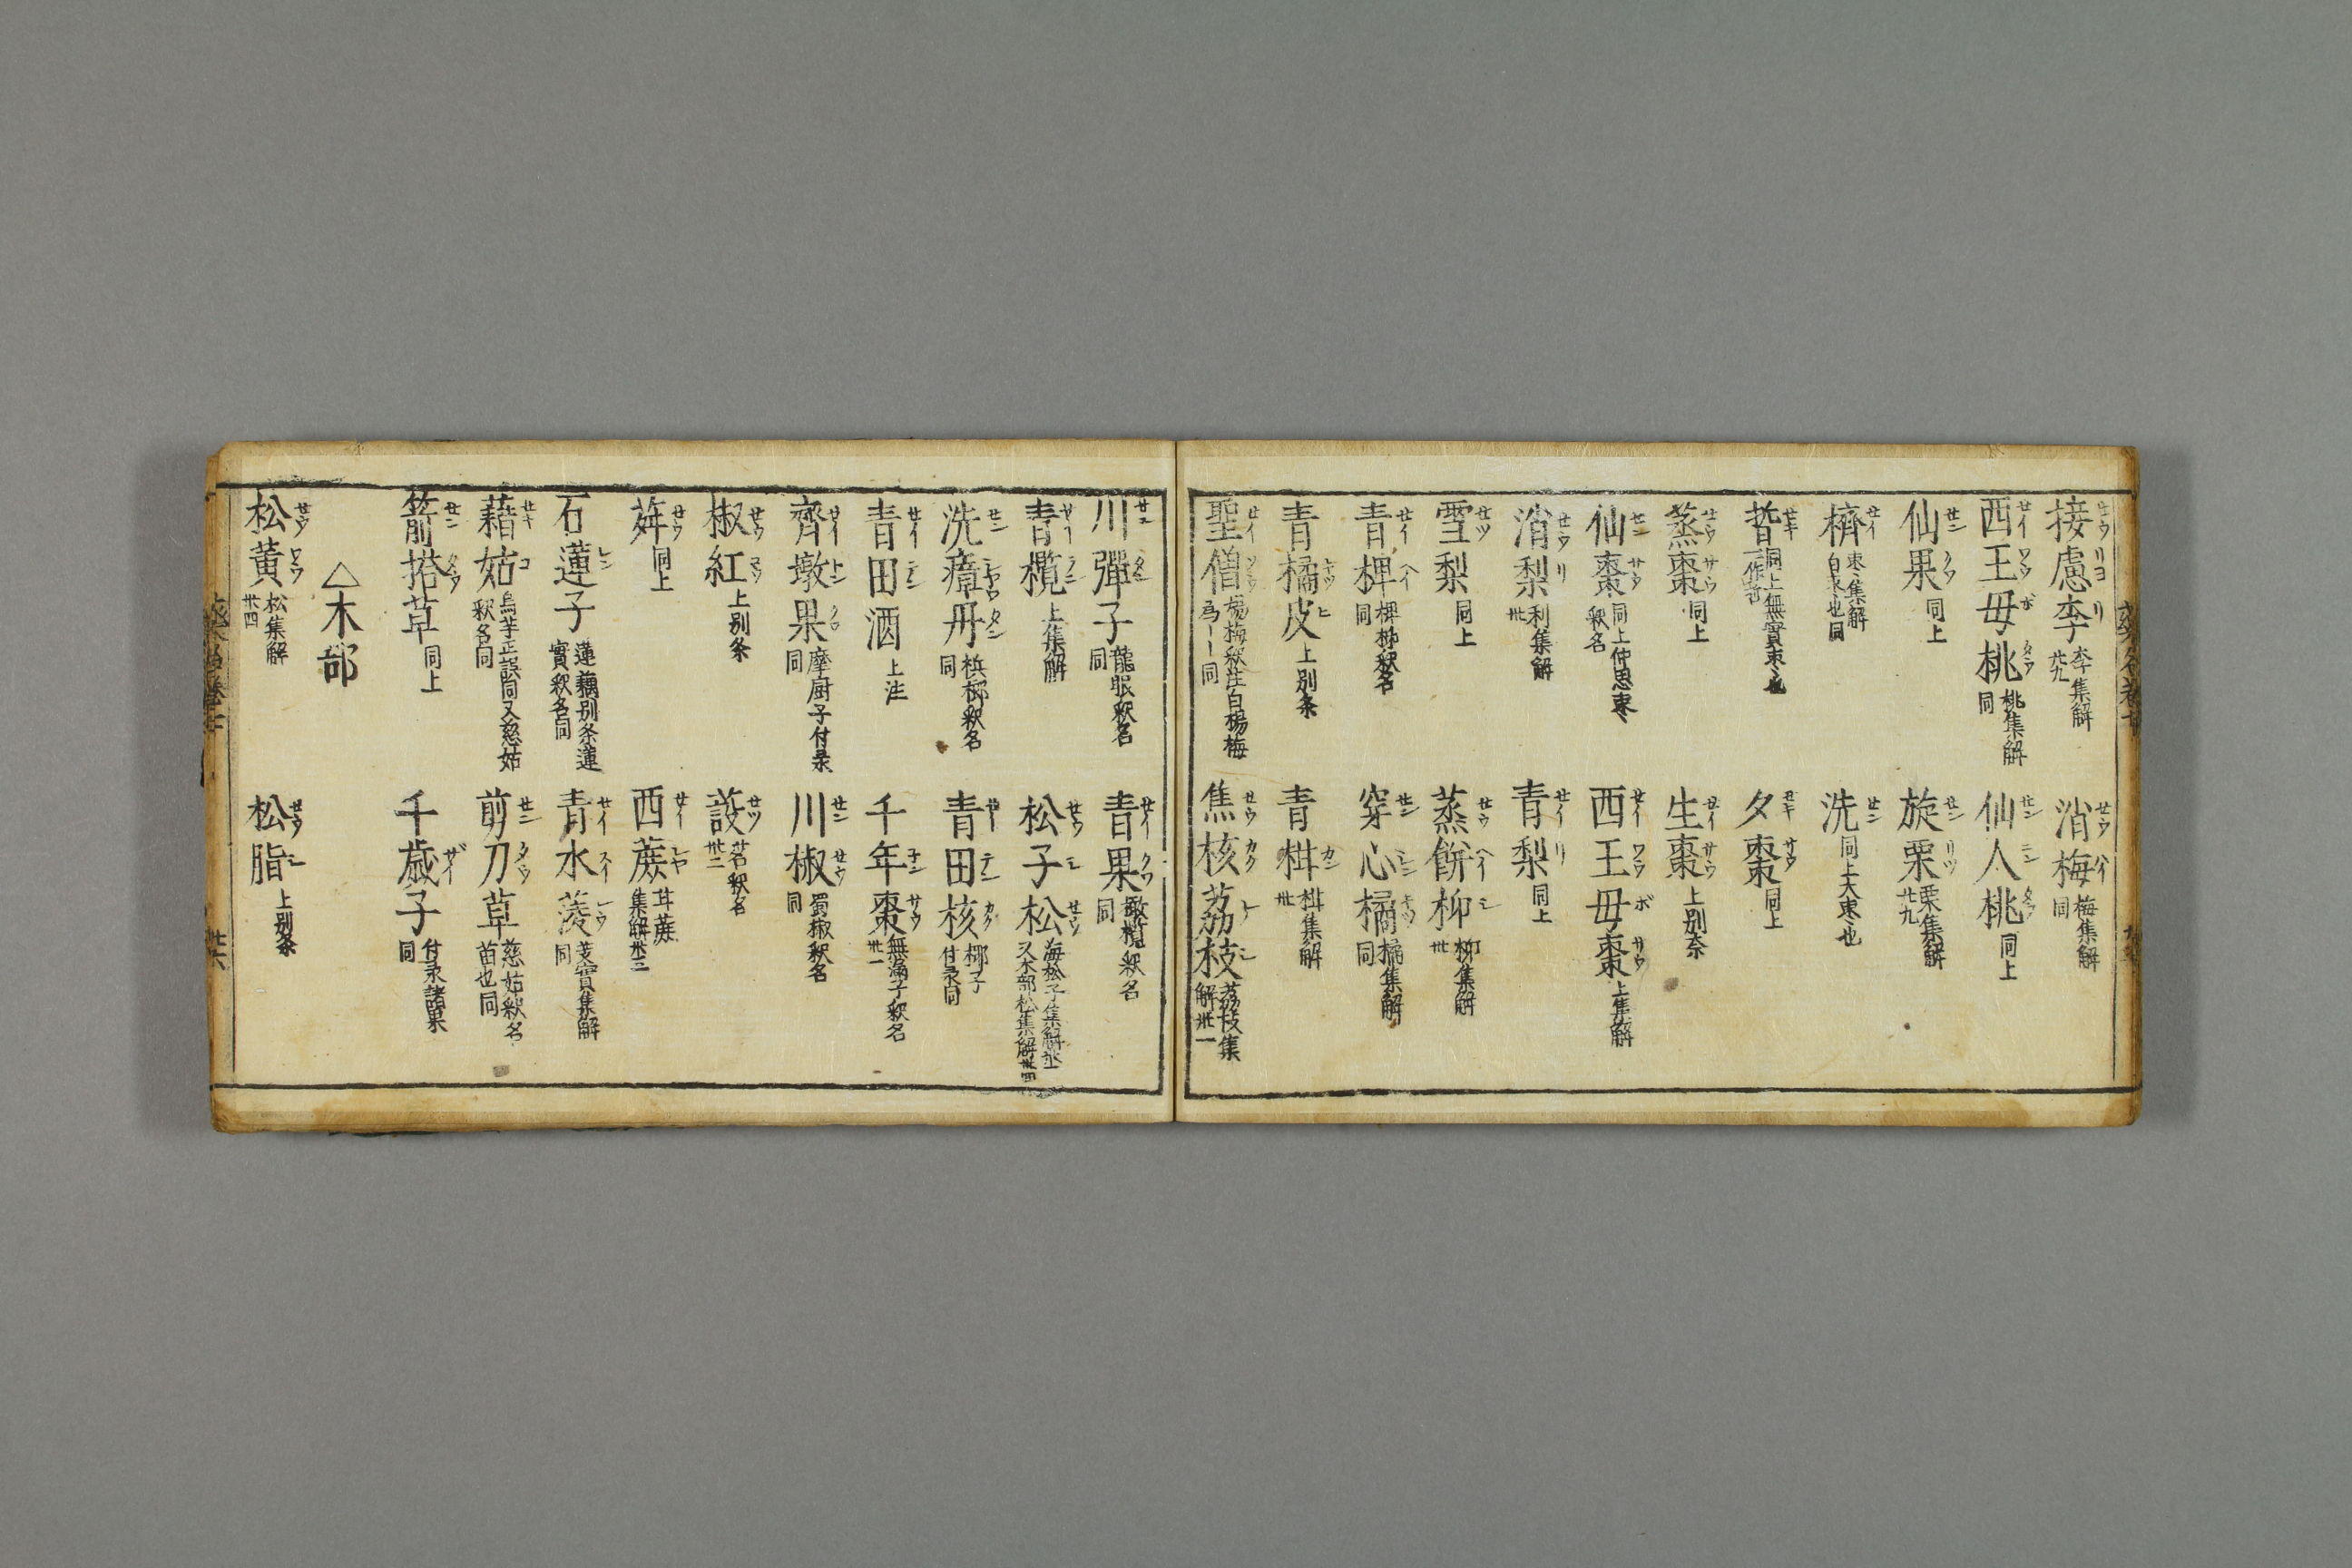 接慮李 李集解 廿九
消梅 梅集解 同
西王母桃 桃集解 同
仙人桃 同上
仙果 同上
旋栗 栗集解 廿九
櫅 枣集解 白枣也同
洗 同上大枣也
晢 同上無實枣也
夕棗 同上
蒸棗 同上
生棗 上別条
仙棗 同上仲思枣 釈名
西王母棗 上集解
消梨 利集解 卅
青梨 同上
雪梨 同上
蒸餅柹 柹集解 卅
青椑 椑柹釈名 同
穿心橘 橘集解 同
青橘皮 上別条
青柑 柑集解 卅
聖僧 楊梅釈注白楊梅 為ーー同
焦核荔枝 荔枝集解 卅一
川彈子 龍眼釈名 同
青果 橄欖釈名 同
青欖 上集解
松子松 海松子集解卅一 又木部松集解卅四
洗瘴丹 梹榔釈名 同
青田核 椰子付录同
青田酒 上注
千年棗 無漏子釈名 卅一
齊墩果 摩厨子付录 同
川椒 蜀椒釈名 同
椒紅 上別条
蔎 茗釈名 卅二
荈 同上
西蔗 甘蔗集解卅三
石蓮子 蓮藕別条蓮實釈名同
青水菱 芰實集解 同
藉姑 烏芋正誤同又慈姑釈名同
剪刀草 慈姑釈名 苗也同
箭搭草 同上
千歳子 付录諸果 同
△木部
松黄 松集解 卅四
松脂 上別条